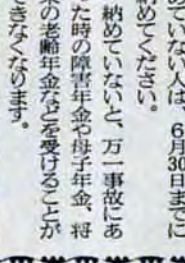 めていない人は、6月30日までに
納めてください。
納めていないと、万一事故にあ
った時の障害年金や母子年金、将
来の老齢年金などを受けることが
できなくなります。